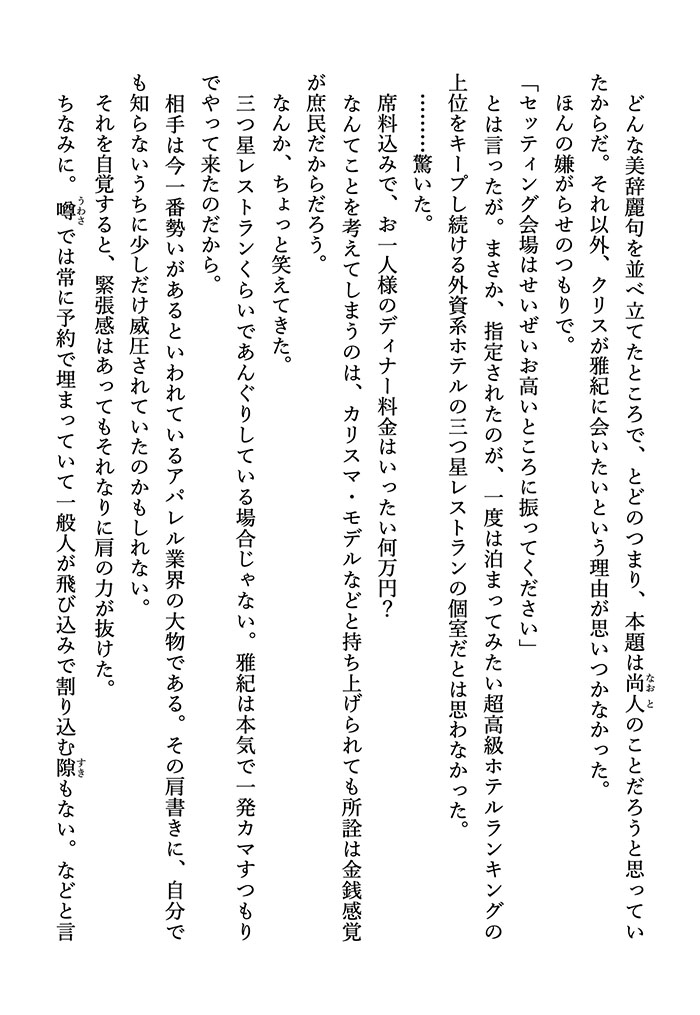 どんな美辞麗句を並べ立てたところで、とどのつまり、本題は尚人のことだろうと思ってい
たからだ。それ以外、クリスが雅紀に会いたいという理由が思いつかなかった。
ほんの嫌がらせのつもりで。
「セッティング会場はせいぜいお高いところに振ってください」
とは言ったが。まさか、指定されたのが、一度は泊まってみたい超高級ホテルランキングの
上位をキープし続ける外資系ホテルの三つ星レストランの個室だとは思わなかった。
………驚いた。
席料込みで、お一人様のディナー料金はいったい何万円？
なんてことを考えてしまうのは、カリスマ・モデルなどと持ち上げられても所詮は金銭感覚
が庶民だからだろう。
なんか、ちょっと笑えてきた。
三つ星レストランくらいであんぐりしている場合じゃない。雅紀は本気で一発カマすつもり
でやって来たのだから。
相手は今一番勢いがあるといわれているアパレル業界の大物である。その肩書きに、自分で
も知らないうちに少しだけ威圧されていたのかもしれない。
それを自覚すると、緊張感はあってもそれなりに肩の力が抜けた。
ちなみに。噂では常に予約で埋まっていて一般人が飛び込みで割り込む隙もない。などと言